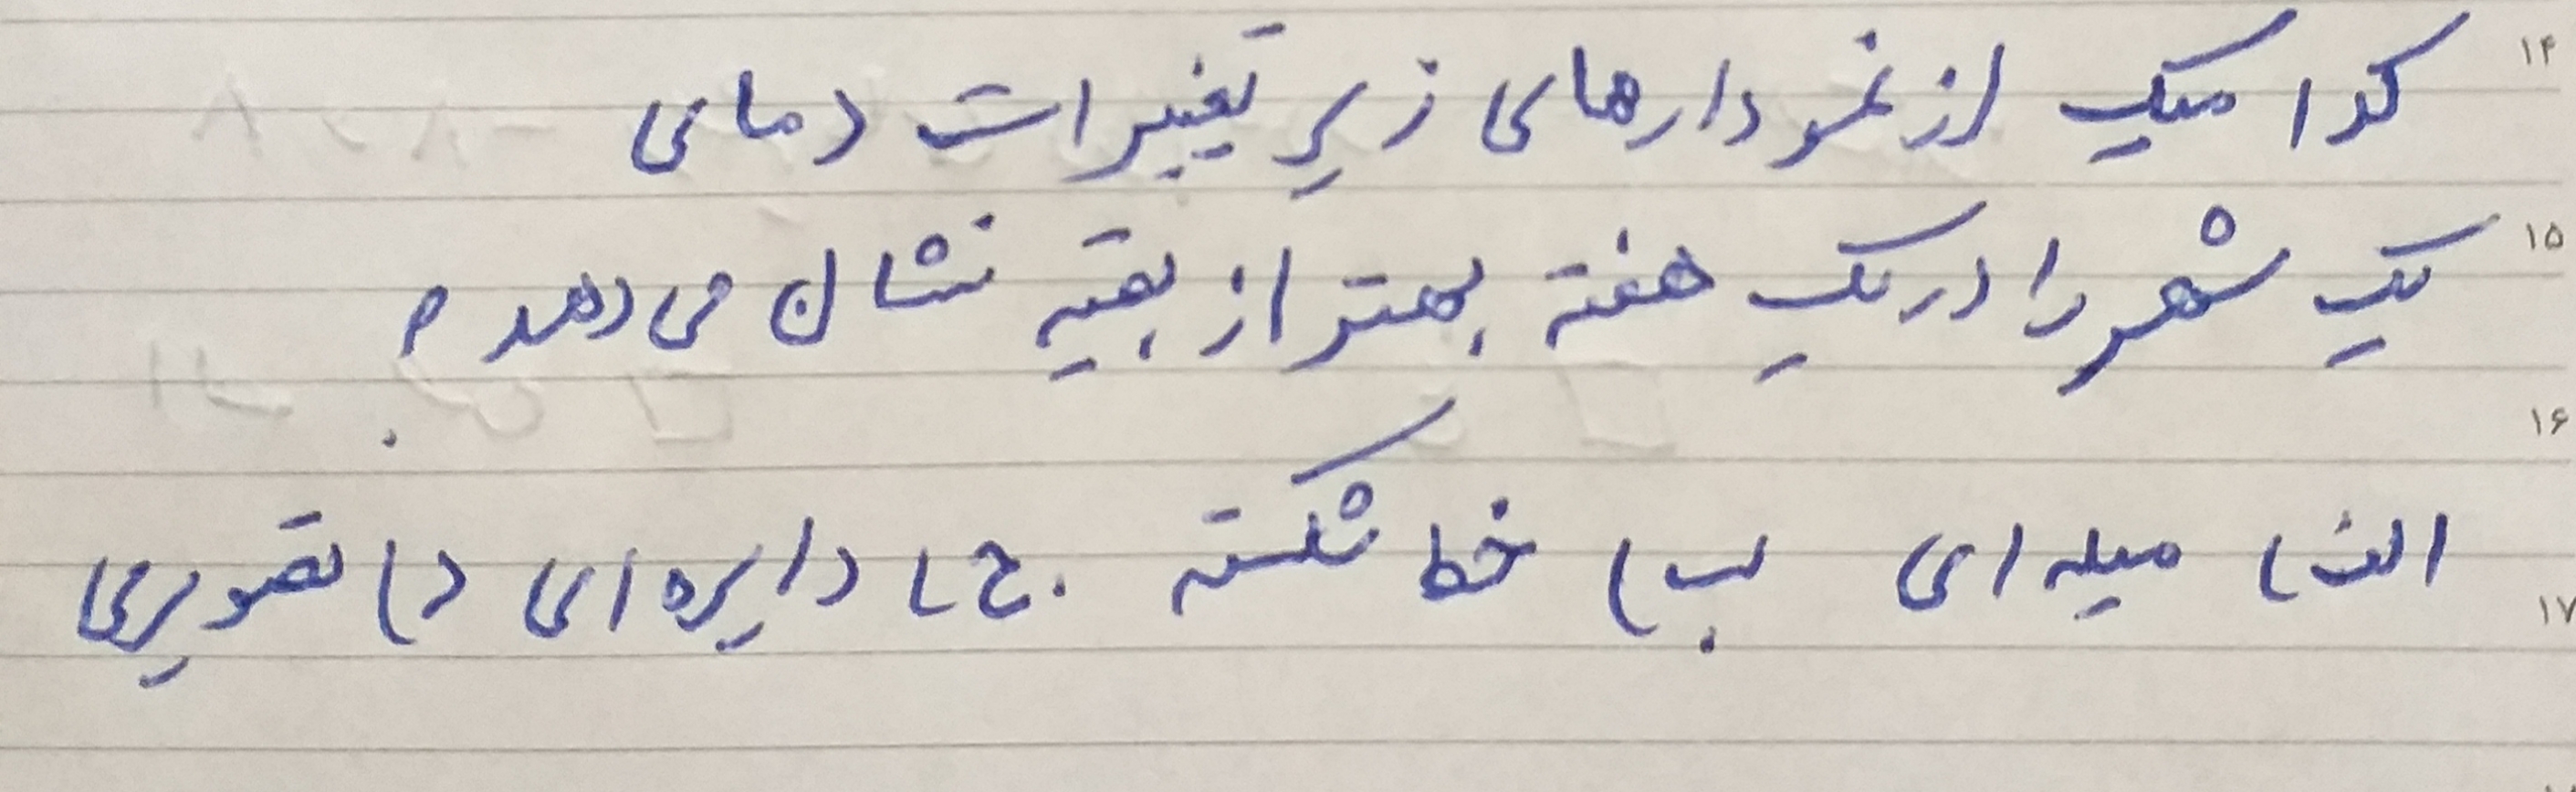 ۱۴ کدامیک از نمودارهای زیر تغییرات دمای
۱۵ یک شهر را در یک هفته بهتر از بقیه نشان می‌دهد؟
۱۶
الف) میله‌ای ب) خط شکسته ج) دایره‌ای د) تصویری
۱۷